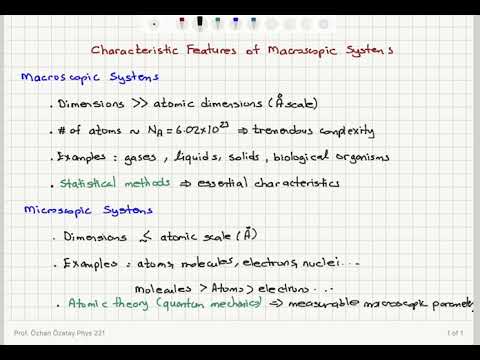 Characteristic Features of Macroscopic Systems
Macroscopic Systems
. Dimensions >> atomic dimensions (Å scale)
. # of atoms ~ NA = 6.02x10²³ ⇒ tremendous complexity
. Examples : gases, liquids, solids, biological organisms
. Statistical methods ⇒ essential characteristics
Microscopic Systems
. Dimensions ≲ atomic scale (Å)
. Examples : atoms, molecules, electrons, nuclei ...
molecules > Atoms > electrons ...
. Atomic theory (quantum mechanics) ⇒ measurable macroscopic paramete
Prof. Özhan Özatay Phys 221
1 of 1